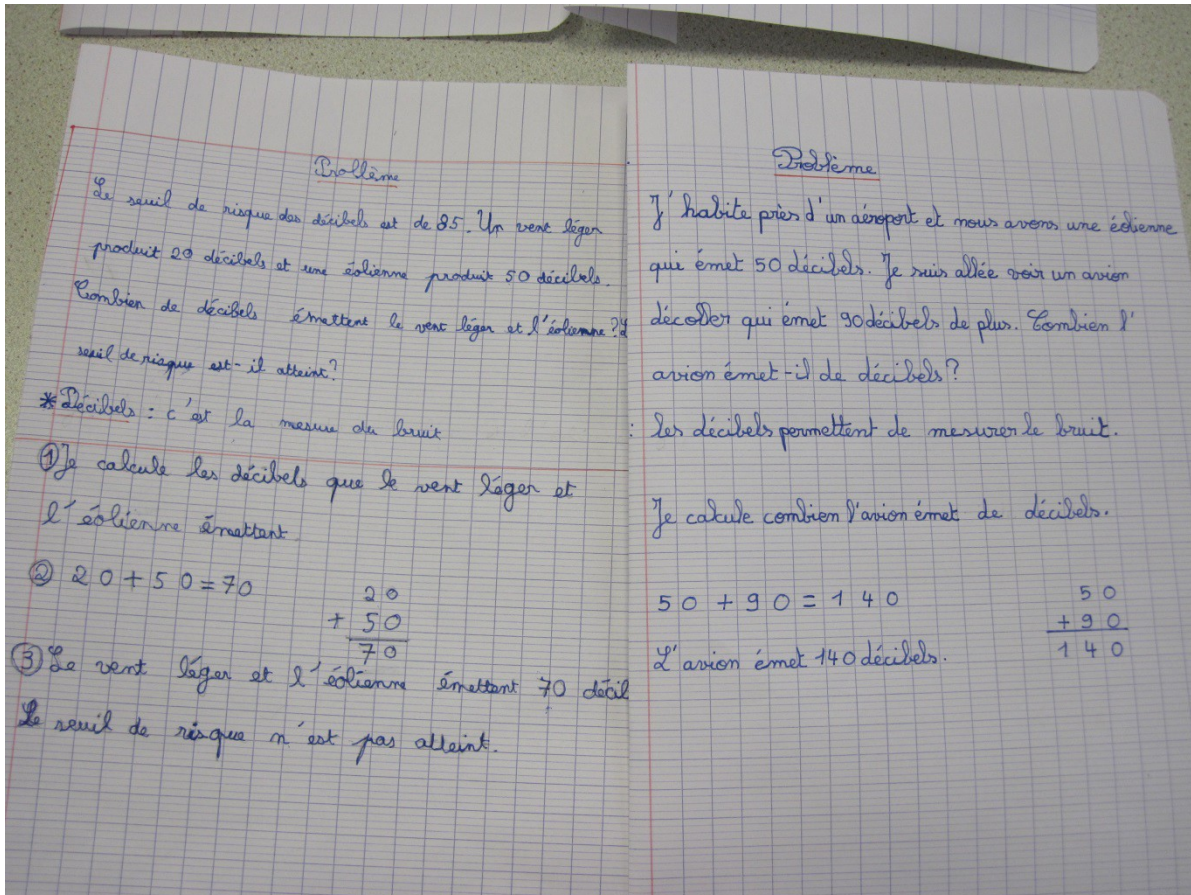 Problème
Le seuil de risque des décibels est de 85. Un vent léger
produit 20 décibels et une éolienne produit 50 décibels.
Combien de décibels émettent le vent léger et l'éolienne ? L
seuil de risque est-il atteint?
* Décibels : c'est la mesure du bruit
① Je calcule les décibels que le vent léger et
l'éolienne émettent
② 20 + 50 = 70
20
+ 50
70
③ Le vent léger et l'éolienne émettent 70 décib
Le seuil de risque n'est pas atteint.
Problème
J'habite près d'un aéroport et nous avons une éolienne
qui émet 50 décibels. Je suis allée voir un avion
décoller qui émet 90 décibels de plus. Combien l'
avion émet-il de décibels?
: les décibels permettent de mesurer le bruit.
Je calcule combien l'avion émet de décibels.
50 + 90 = 140
50
+ 90
140
L'avion émet 140 décibels.